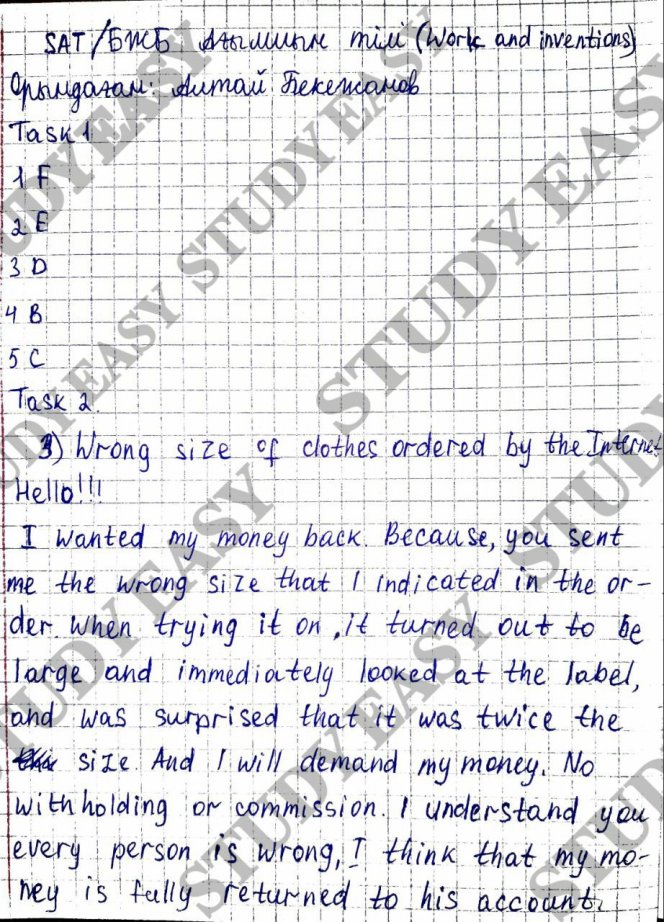 SAT/БЖБ Ағылшын тілі (Work and inventions)
Орындаған: Алтай Бекежанов
Task 1
1 F
2 E
3 D
4 B
5 C
Task 2.
3) Wrong size of clothes ordered by the Internet
Hello!!!
I wanted my money back. Because, you sent
me the wrong size that I indicated in the or-
der. When trying it on, it turned out to be
large and immediately looked at the label,
and was surprised that it was twice the
size And I will demand my money. No
withholding or commission. I understand you
every person is wrong, I think that my mo-
ney is fully returned to his account.
STUDY EASY